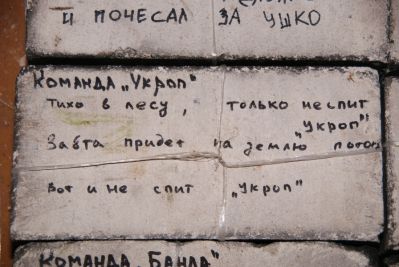 и почесал за ушко
Команда „Укроп"
Тихо в лесу, только не спит
„Укроп"
Завтa придет на землю потоп
Вот и не спит „Укроп"
Команда „Банда"